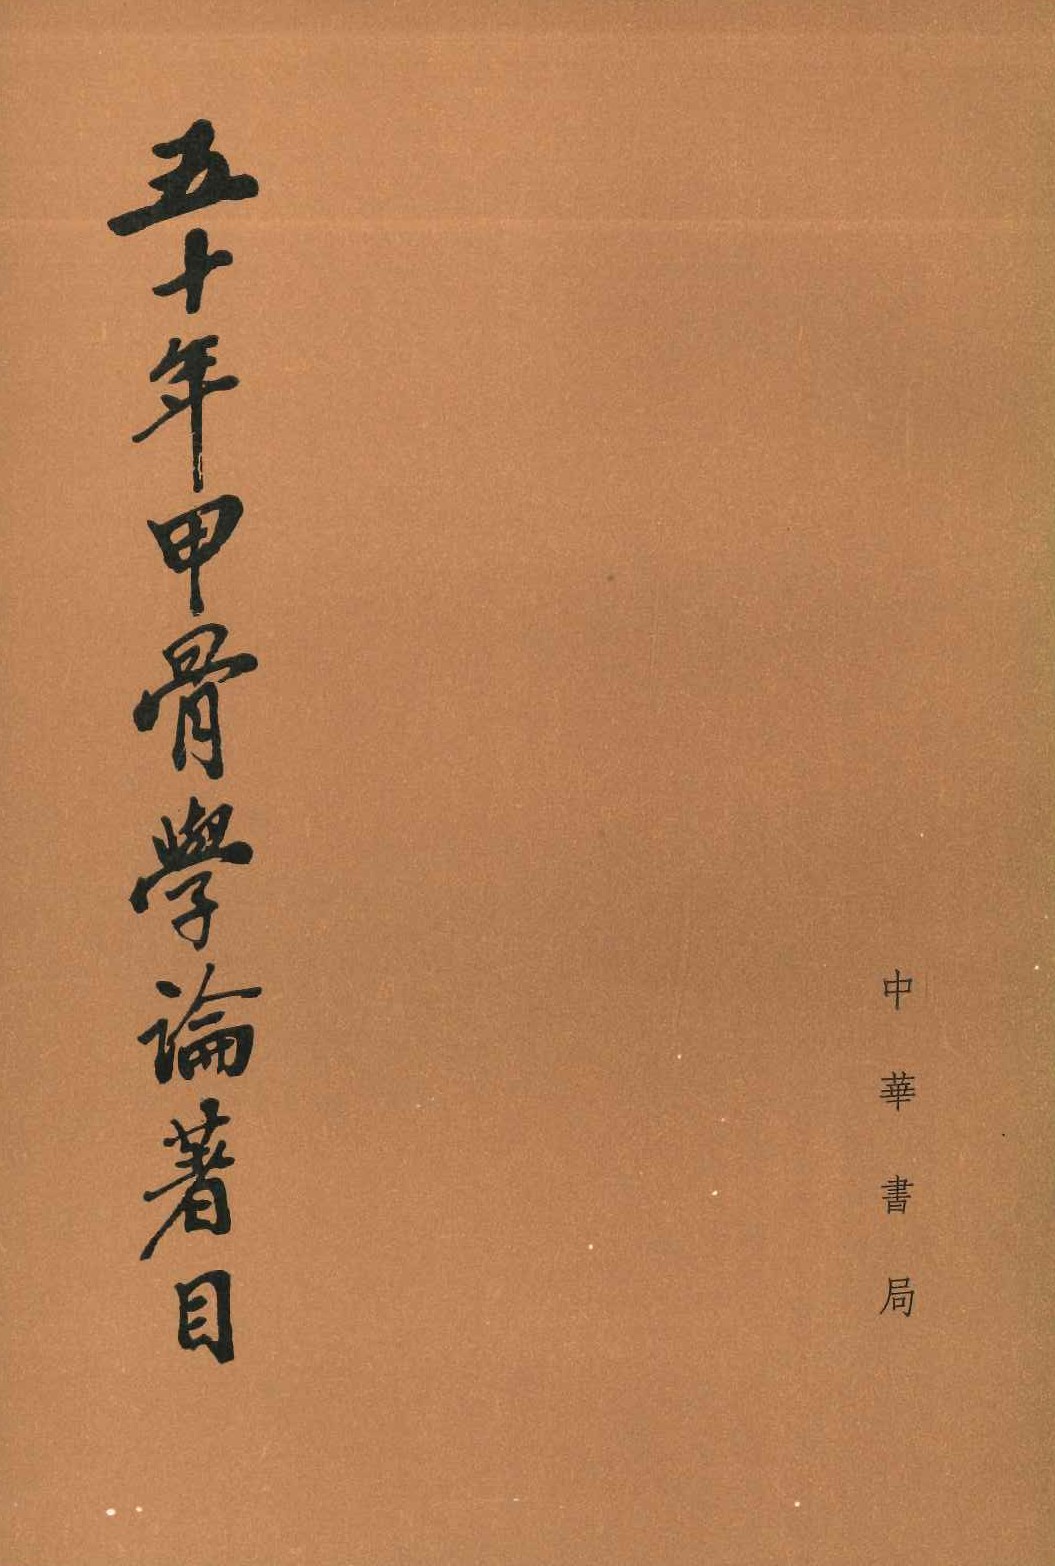 五十年甲骨學論著目
中華書局